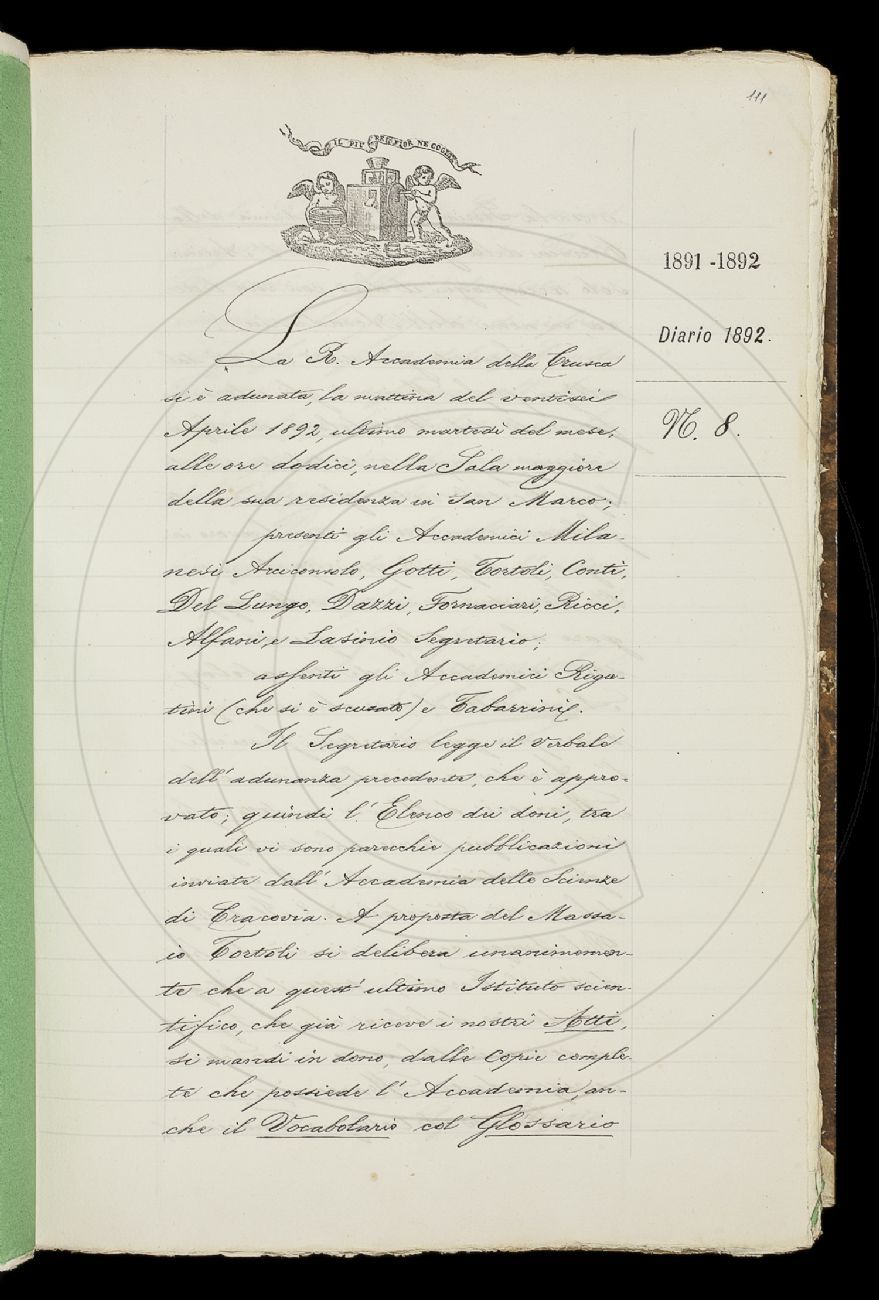 111
IL PIÙ BEL FIOR NE COGLIE
1891-1892
Diario 1892.
N. 8.
La R. Accademia della Crusca
si è adunata, la mattina del ventisei
Aprile 1892, ultimo martedì del mese,
alle ore dodici, nella Sala maggiore
della sua residenza in San Marco;
presenti gli Accademici Mila-
nesi Arciconsolo, Gotti, Tortoli, Conti,
Del Lungo, Dazzi, Fornaciari, Ricci,
Alfani, e Lasinio Segretario;
assenti gli Accademici Riga-
tini (che si è scusato) e Tabarrini.
Il Segretario legge il Verbale
dell'adunanza precedente, che è appro-
vato; quindi l'Elenco dei doni, tra
i quali vi sono parecchie pubblicazioni
inviate dall'Accademia delle Scienze
di Cracovia. A proposta del Massa-
io Tortoli si delibera unanimemen-
te che a quest'ultimo Istituto scien-
tifico, che già riceve i nostri Atti,
si mandi in dono, dalle copie comple-
te che possiede l'Accademia, an-
che il Vocabolario col Glossario